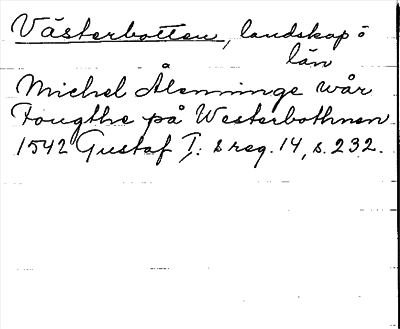 Västerbotten, landskap o
län
Michel Ålenninge wår
Fougthe på Westerbothnen
1542 Gustaf I: s reg. 14, s. 232.